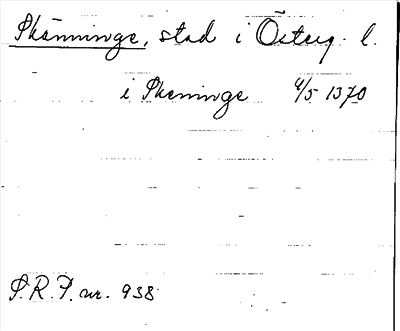 Skänninge, stad i Österg. l.
i Skeninge 4/5 1370
S.R.P. nr. 938